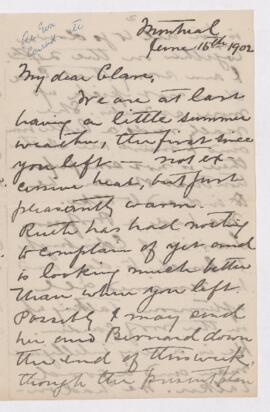 Montreal
June 15th 1902
My dear Clare,
We are at last
having a little summer
weather, the first since
you left — not ex-
cessive heat, but just
pleasantly warm.
Ruth has had nothing
to complain of yet and
is looking much better
than when you left.
Possibly I may send
her and Bernard down
the end of this week,
though the present plan